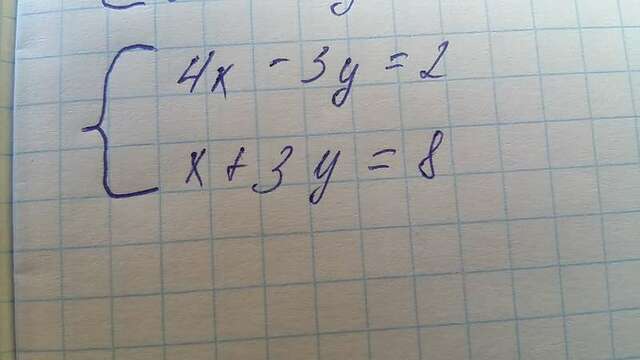 4x - 3y = 2
x + 3y = 8